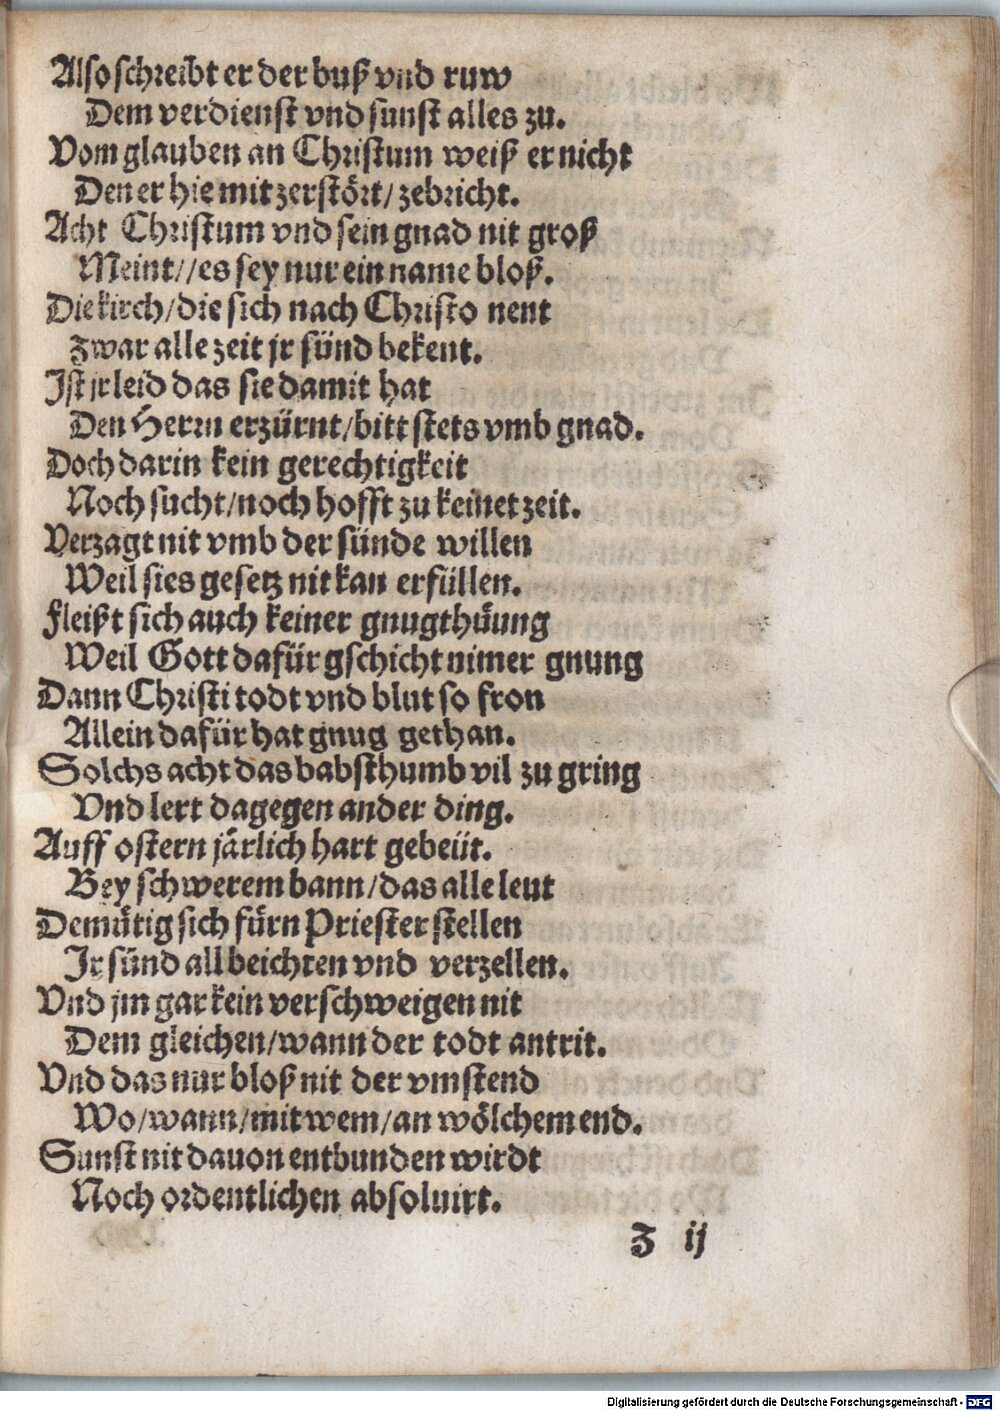 Also schreibt er der buß vnd ruw
Dem verdienst vnd sunst alles zu.
Vom glauben an Christum weiß er nicht
Den er hie mit zerstört/ zebricht.
Acht Christum vnd sein gnad nit groß
Meint//es sey nur ein name bloß.
Die kirch/die sich nach Christo nent
Zwar alle zeit jr sünd bekent.
Ist jr leid das sie damit hat
Den Herrn erzürnt/bitt stets vmb gnad.
Doch darin kein gerechtigkeit
Noch sucht/noch hofft zu keinet zeit.
Verzagt nit vmb der sünde willen
Weil sies gesetz nit kan erfüllen.
Fleißt sich auch keiner gnugthüung
Weil Gott dafür gschicht nimer gnung
Dann Christi todt vnd blut so fron
Allein dafür hat gnug gethan.
Solchs acht das babsthumb vil zu gring
Vnd lert dagegen ander ding.
Auff ostern järlich hart gebeüt.
Bey schwerem bann/das alle leut
Demütig sich fürn Priester stellen
Ir sünd all beichten vnd verzellen.
Vnd jm gar kein verschweigen nit
Dem gleichen/wann der todt antrit.
Vnd das nur bloß nit der vmstend
Wo/wann/mit wem/an wölchem end.
Sunst nit dauon entbunden wirdt
Noch ordentlichen absoluirt.
Z ij
Digitalisierung gefördert durch die Deutsche Forschungsgemeinschaft - DFG